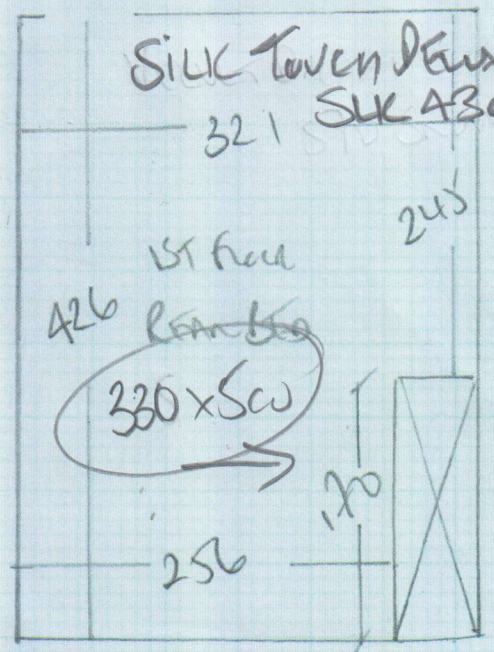 SILK TOUCH DELUX
SLK 430
321
245
1ST FLOOR
426
REAR BED
330 x 500
170
256